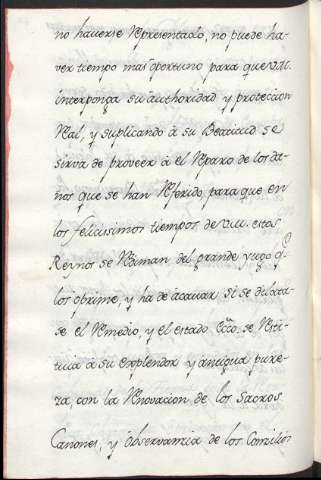 no hauerse Representado, no puede ha-
ver tiempo mas oportuno para que V.M.
interponga su authoridad y proteccion
Real, y suplicando à su Beatitud se
sirva de proveer à el Reparo de los da-
ños que se han Referido, para que en
los felicissimos tiempos de V.M. estos
Reynos se Rediman del grande yugo q.e
los oprime, y ha de acauar si se dilata-
se el Remedio, y el estado Ecco. se Resti-
tuia à su explendor y antigua pure-
za, con la Renovacion de los Sacros
Canones, y observanzia de los Conzilios